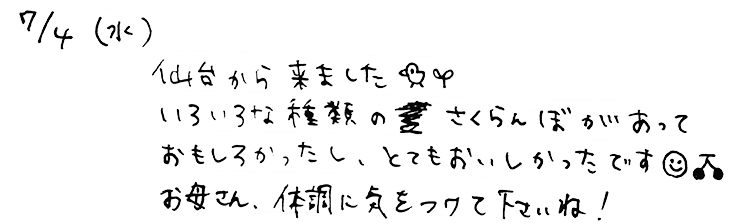 7/4 (水)
仙台から来ました
いろいろな種類のさくらんぼがあって
おもしろかったし、とてもおいしかったです
お母さん、体調に気をつけて下さいね!